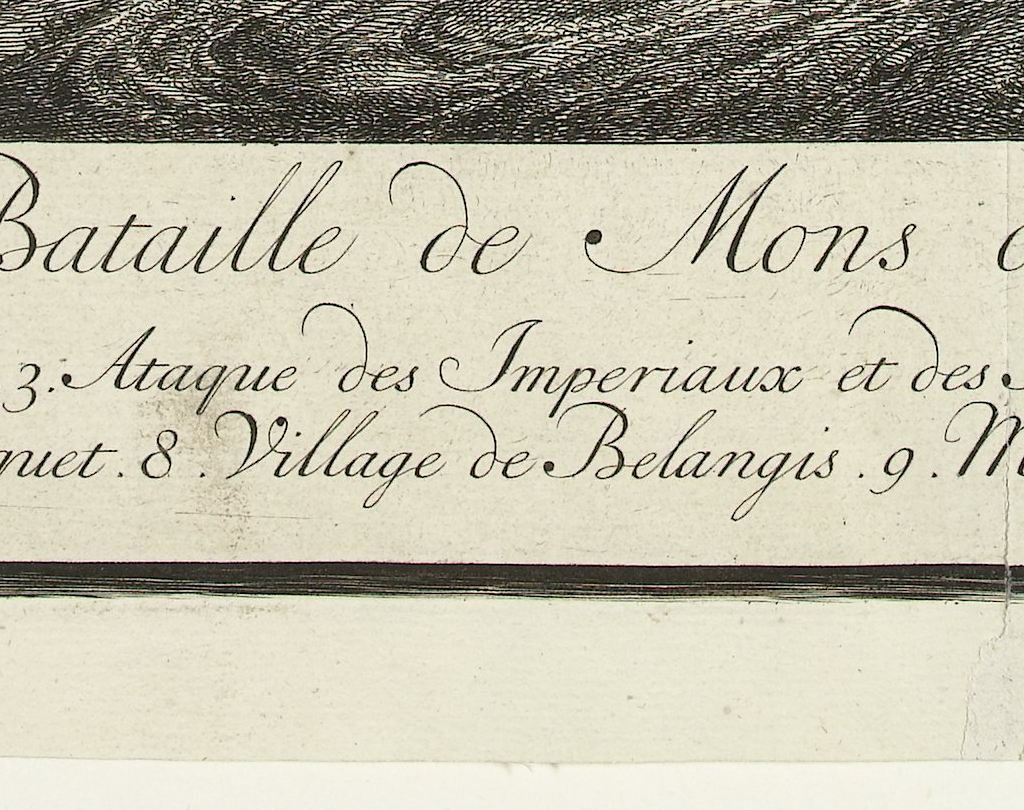 Bataille de Mons
3. Ataque des Imperiaux et des
8. Village de Belangis. 9.